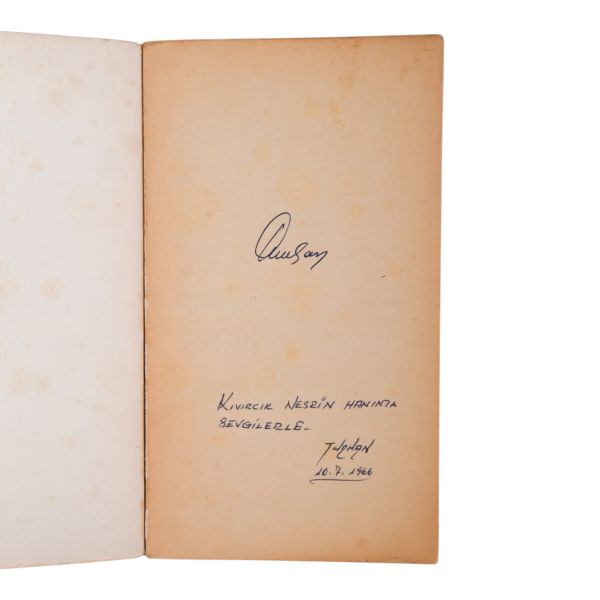 KIVIRCIK NESRİN HANIMA
SEVGİLERLE..
TURHAN
10.7.1966